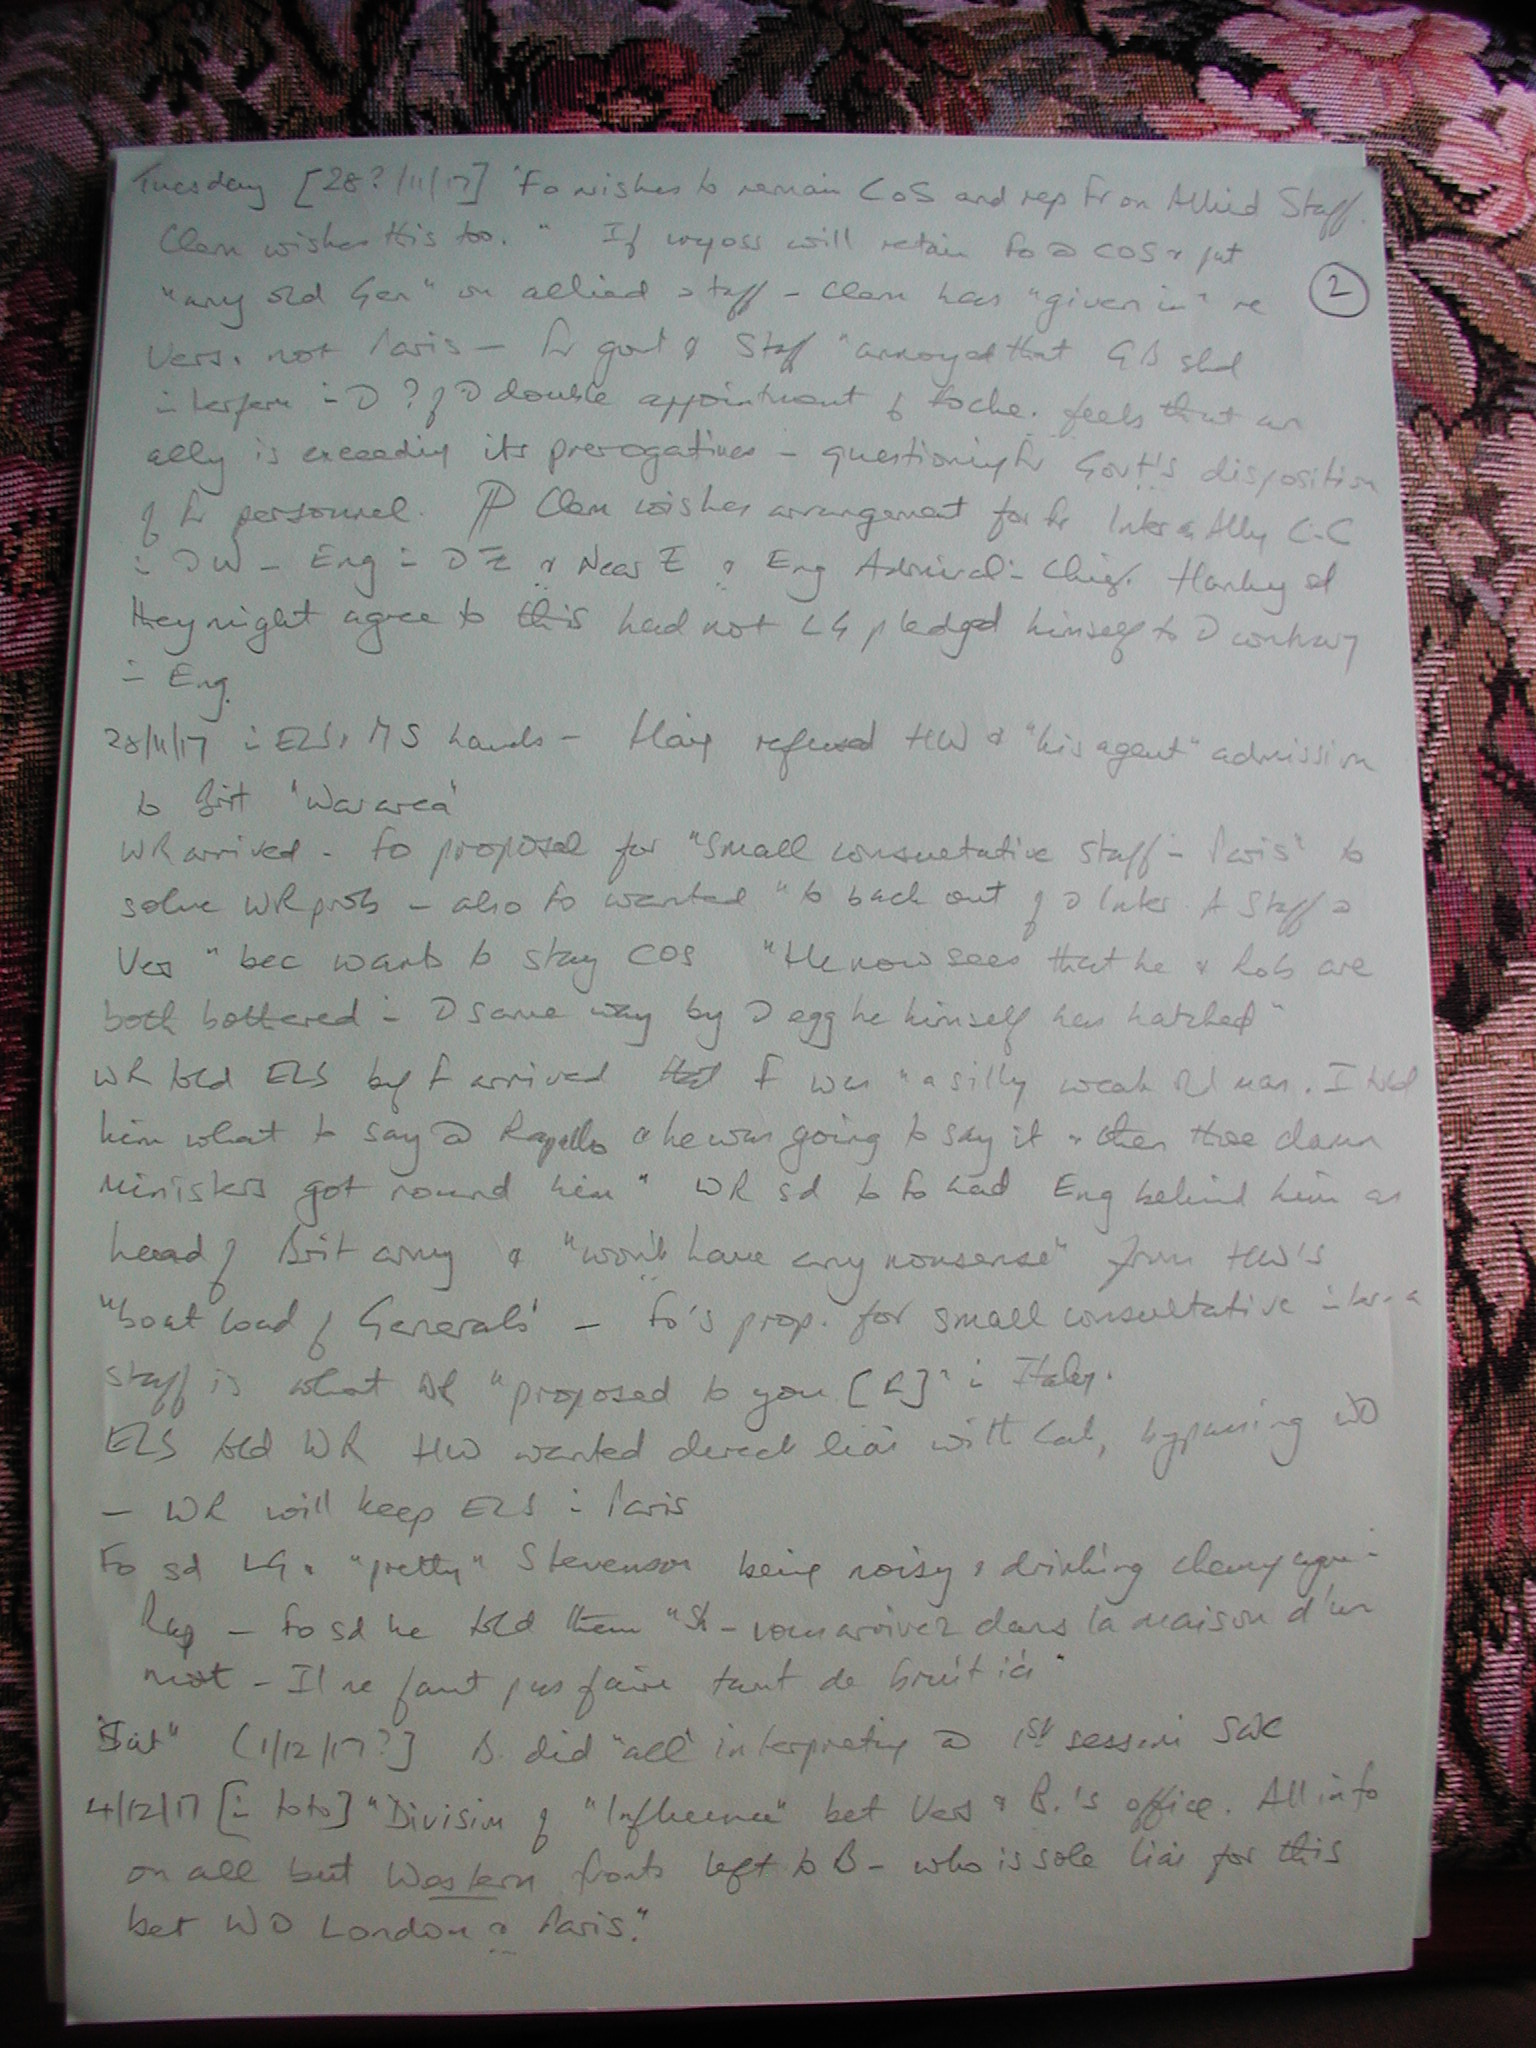 Tuesday [28?/11/17] "Fo wishes to remain CoS and rep Fr on Allied Staff.
Clem wishes this too." If will retain Fo COS & put
2
"any old Gen" on allied staff - Clem has "given in" re
Vers. not Paris - Fr govt & Staff "annoyed that GB shd
double appointment of Foche. feels that an
ally is exceeding its prerogatives - questioning Fr Govt's disposition
of Fr personnel. Clem wishes arrangement for Fr Inter Ally C-C
W - Eng & Near E & Eng Admiral - Hankey sd
they might agree to this had not LG pledged himself to contrary
Eng.
28/11/17 ELS's MS hands - Haig refused HW & "his agent" admission
to Brit 'War area'
WR arrived - Fo proposal for "Small consultative staff - Paris" to
solve WR prob - also Fo wanted "to back out of Inter A Staff
Vers" bec wants to stay COS "He now sees that he & Rob are
both bothered same way by egg he himself has hatched"
WR told ELS bef F arrived that F was "a silly weak old man. I told
him what to say Rapallo & he was going to say it & then those damn
ministers got round him" WR sd to Fo had Eng behind him as
head of Brit army & "won't have any nonsense" from HW's
"boat load of Generals' - Fo's prop. for small consultative inter-a
staff is what WR "proposed to you [R]" Italy.
ELS told WR HW wanted direct liais with Cab, bypassing WO
- WR will keep ELS Paris
Fo sd LG & "pretty" Stevenson being noisy & drinking
Rap - Fo sd he told them "Sh - vous arrivez dans la maison d'un
mort - Il ne faut pas faire tant de bruit ici"
"Sat" (1/12/17?] B. did "all" interpreting 1st session SWC
4/12/17 [ toto] "Division of "Influence" bet Vers & B.'s office. All info
on all but Western fronts left to B - who is sole liais for this
bet WO London & Paris."